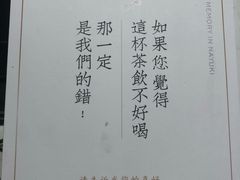 如果您覺得
這杯茶飲不好喝
那一定
是我們的錯！
MEMORY IN NAYUKI